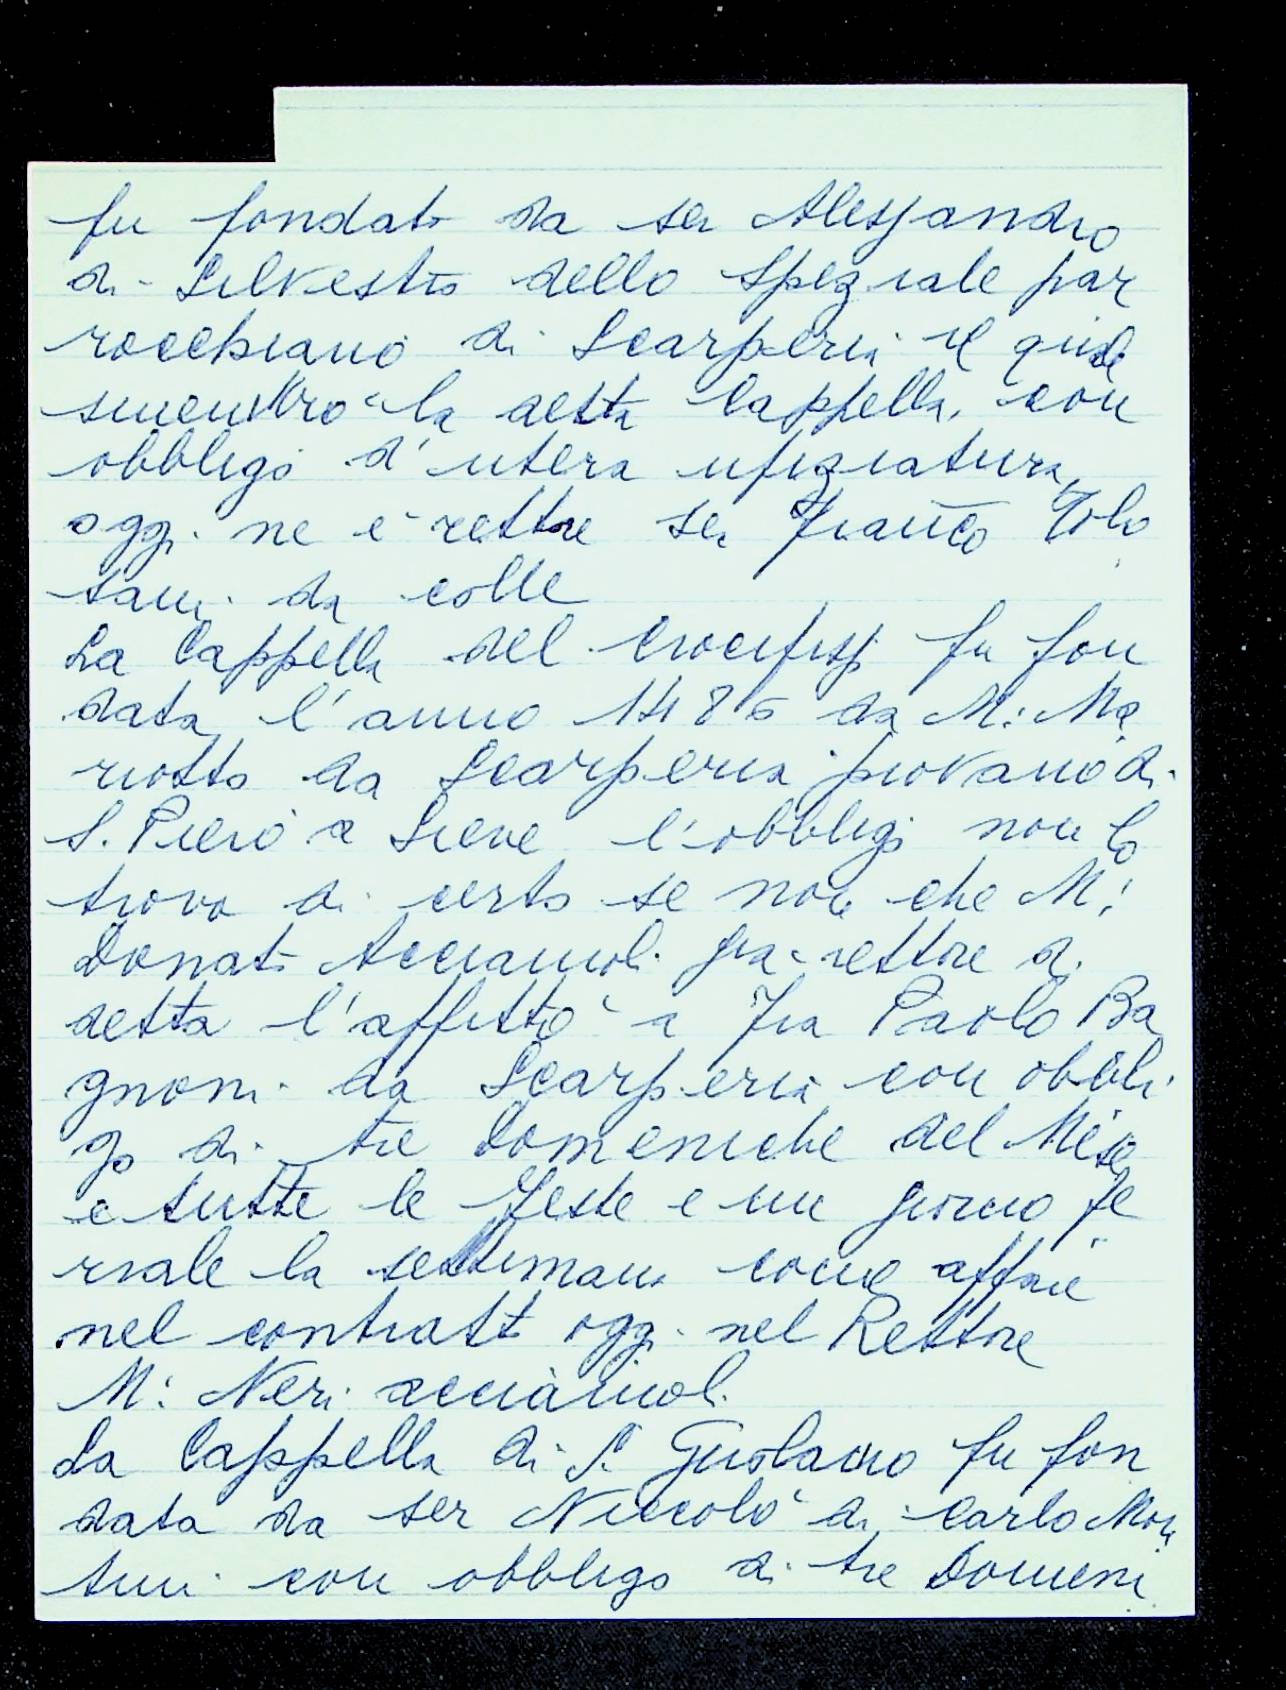 fu fondato da ser Alessandro
di Silvestro dello Speziale par
rocchiano di Scarperia il quale
smembrò la detta Cappella, con
obbligo d'intera ufiziatura,
oggi ne è rettore ser Franco Tolo
sani da colle
La Cappella del Crocifisso fu fon
data l'anno 1486 da M: Ma
riotto da Scarperia piovano di
S. Piero a Sieve l'obbligo non lo
trovo di certo se non che M:
Donato Acciaiuoli già rettore di
detta l'affittò a Fra Paolo Ba
gnoni da Scarperia con obbli
go di tre Domeniche del Mese
e tutte le Feste e un giorno fe
riale la settimana come
nel contratto oggi nel Rettore
M: Neri acciaiuoli
La Cappella di S. Girolamo fu fon
data da ser Niccolò di Carlo Mon
tini con obbligo di tre Domeni